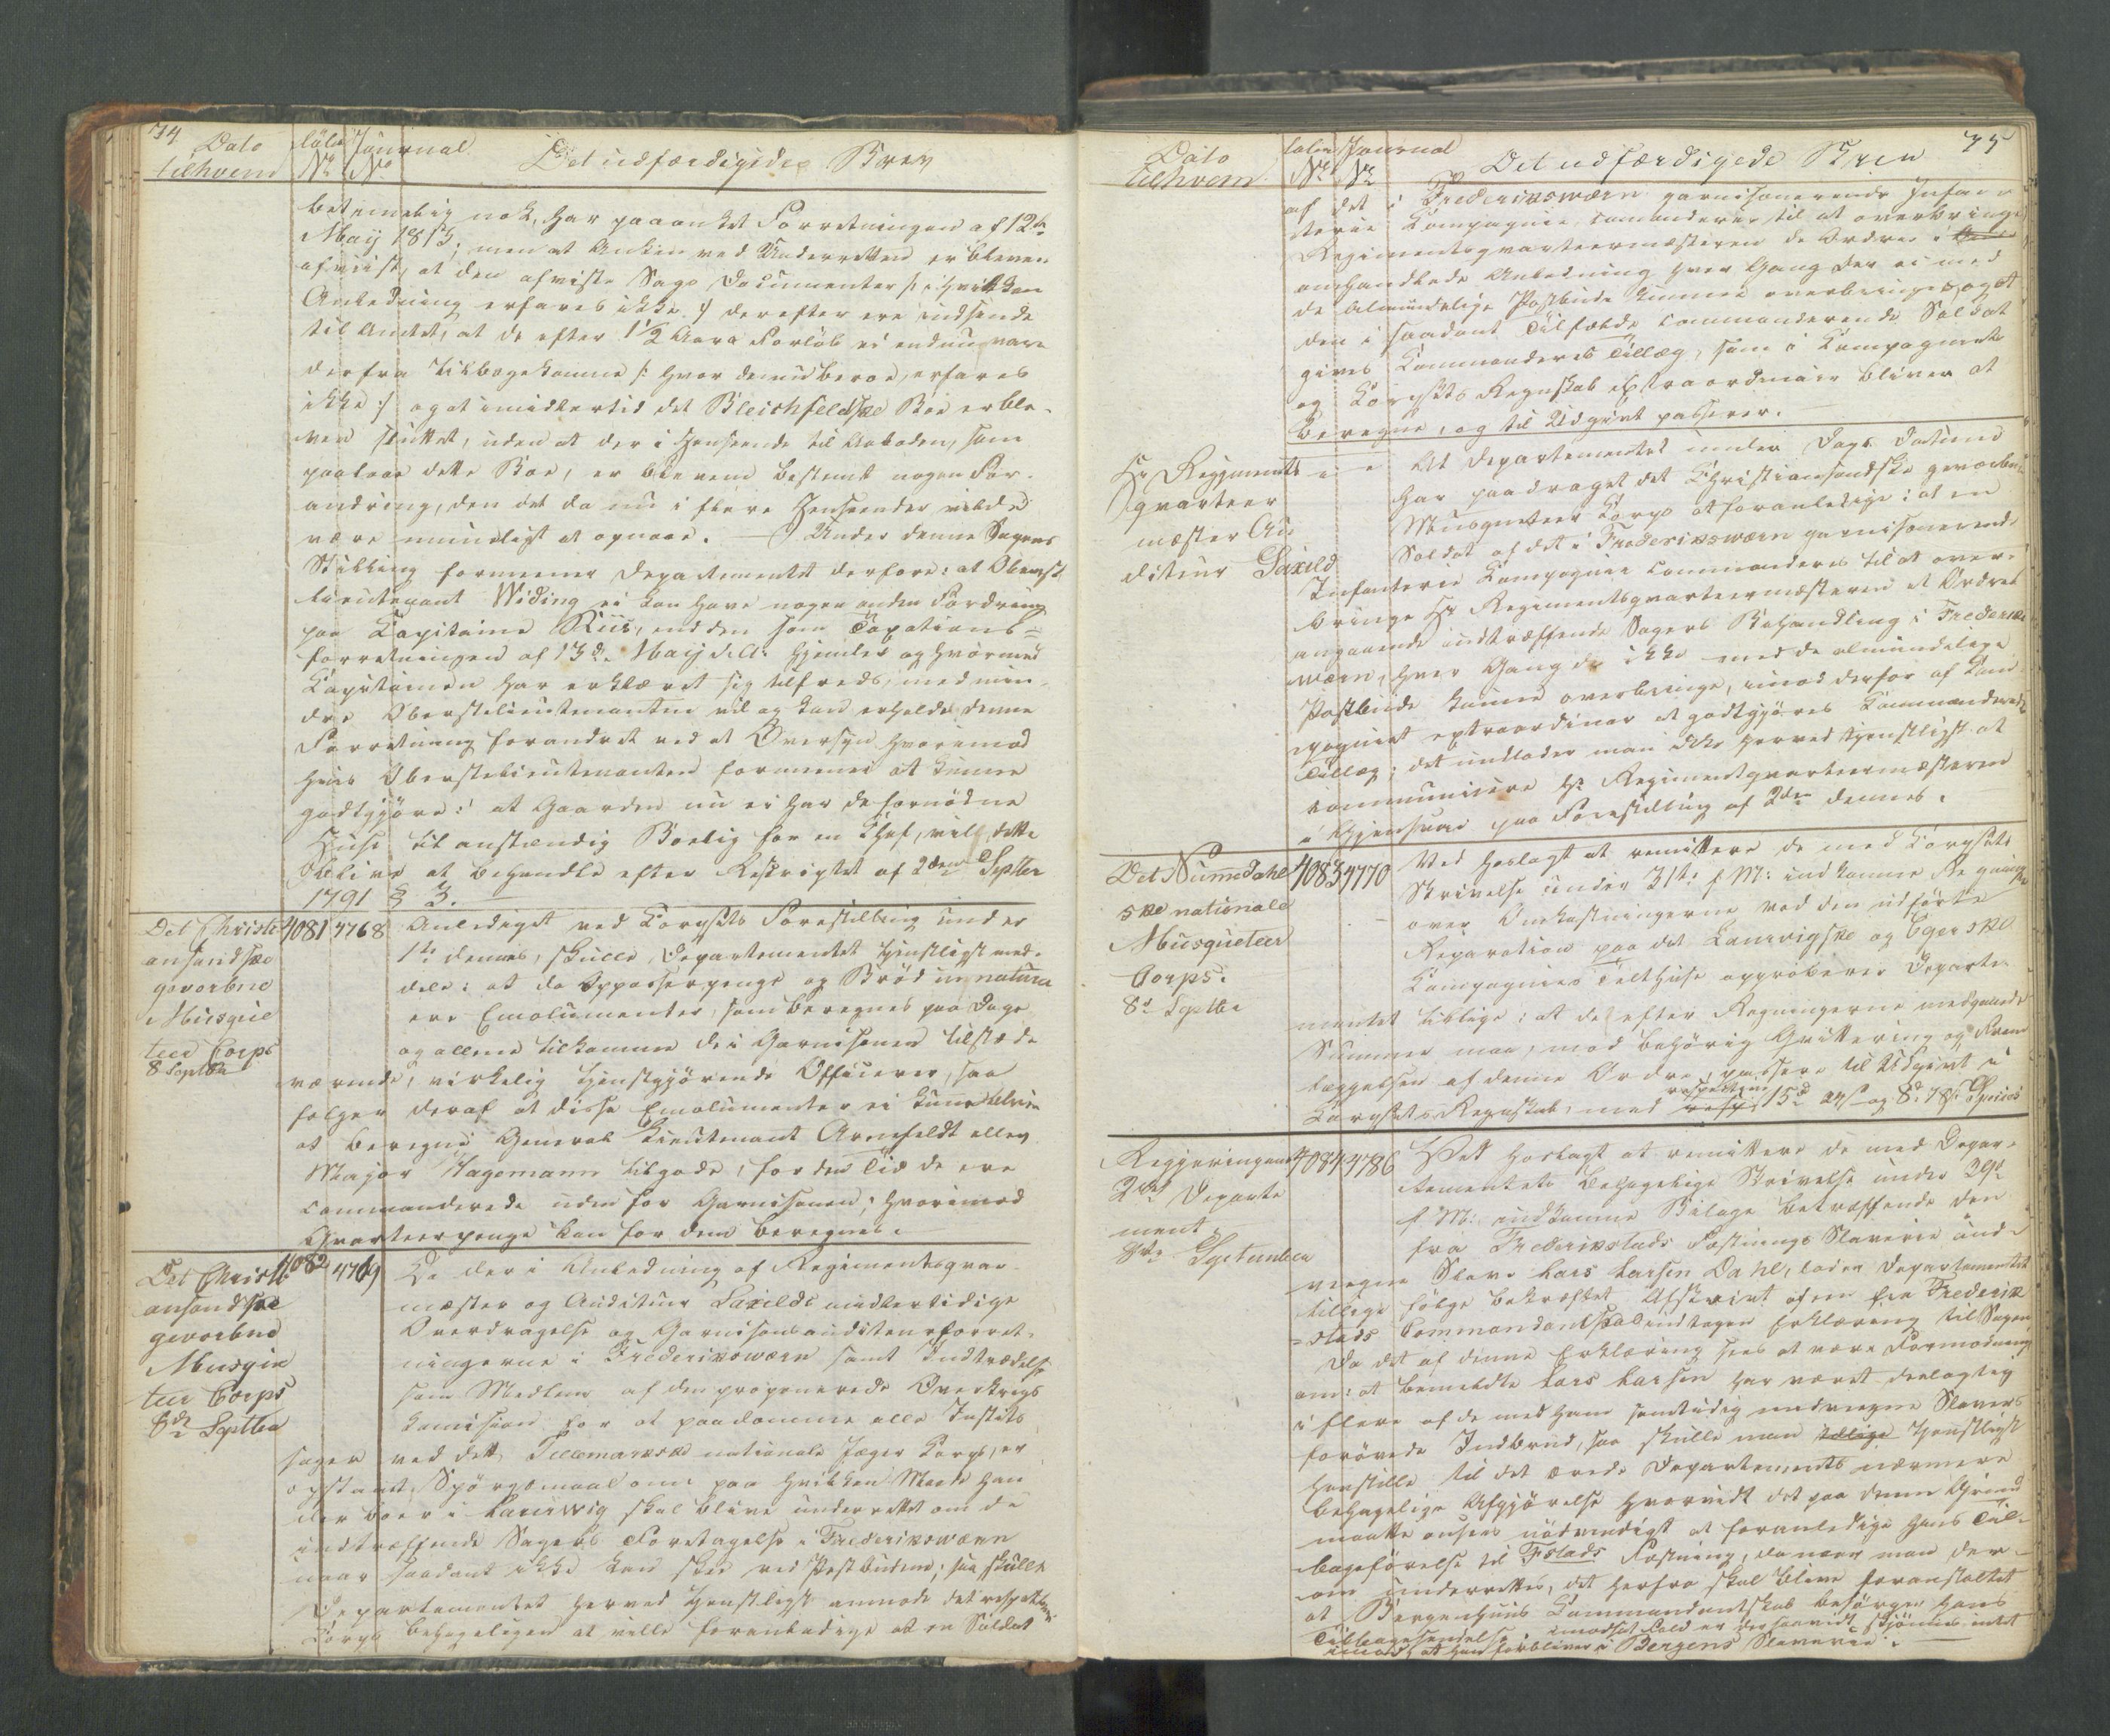 74
Dato
tilhvem
Løbe
No
Journal
No
Det udfærdigede Brev
betimelig nok, har paaanket Forretningen af 12te
May 1813; men at Anken ved Underretten er bleven
afviist, at den afviste Sags Documenter /: i hvilken
Anledning erfares ikke :/ derefter ere indsendte
til Amtet, at de efter 1 1/2 Aars Forløb ei endnu vare
derfra tilbagekomne /: hvor de nu beroe, erfares
ikke :/ og at imidlertid det Bleichfeldske Boe er ble-
ven sluttet, uden at der i Henseende til Aaboden, som
paalaae dette Boe, er bleven bestemt nogen For-
andring, den det da nu i flere Henseender vilde
være umueligt at opnaae. — Under denne Sagens
Stilling formener Departementet derfore: at Oberst-
lieutenant Widing ei kan have nogen anden Fordring
paa Kapitaine Riis, end den som Taxations-
forretningen af 13de May d. A. hjemler og hvormed
Kapitainen har erklæret sig tilfreds, med min-
dre Oberstlieutenanten vil og kan erholde denne
Forretning forandret ved et Oversyn hvorimod
hvis Oberstlieutenanten formener at kunne
godtgjøre: at Gaarden nu ei har de fornødne
Huse til anstændig Boelig for en Chef, vil dette
blive at behandle efter Reskriptet af 2den Septber
1791 § 3. —
Det Christi
ansandske
gevorbne
Musque
teer Corps
8 Septbr
4081 4768
Anlediget ved Corpsets Forestilling under
1ste dennes, skulle Departementet tjenstligst med-
dele: at da Oppasserpenge og Brød in natura
ere Emolumenter, som beregnes paa Dage
og allene tilkomme de i Garnisonen tilstæde
værende, virkelig tjenstgjørende Officerer, saa
følger deraf at disse Emolumenter ei kunne blive
at beregne General Lieutenant Arnefeldt eller
Major Hagemann tilgode, for den Tid de ere
commanderede uden for Garnisonen; hvorimod
Qvarteerpenge kan for dem beregnes. —
Det Christi
ansandske
gevorbne
Musqve
teer Corps
8de Septbr
4082 4769
Da der i Anledning af Regimentsqvar-
mester og Auditeur Saxilds midlertidige
Overdragelse og Garnisonsauditeurforret-
ningerne i Frederiksværn samt Indtrædelse
som Medlem af den proponerede Overkrigs
Komission for at paadømme alle Justits
sager ved det Tellemarkske nationale Jæger Corps, er
opstaaet Spørgsmaal om: paa hvilken Maade han
der boer i Laurwig skal blive underrettet om de
indtræffende Sagers Foretagelse i Frederiksværn
naar saadant ikke kan skee ved Postbudene; saa skulle
Departementet herved tjenstligst anmode det respektive
Corps behageligen at ville foranledige at en Soldat
75
Dato
tilhvem
Løbe
No
Journal
No
Det udfærdigede Brev
af det i Frederiksværn garnisonerende Infan-
terie Kompagnie, comanderes til at overbringe
Regimentsqvarteermesteren de Ordrer i
omhandlede Anledning hver Gang der ei med
de almindelige Postbude kunne overbringes, og at
den i saadant Tilfælde commanderende Soldat
gives Kommanderes Tillæg, som i Kompagniets
og Corpsets Regnskab extraordinair bliver at
beregne, og til Udgivt passerer.
Hr Regiments
qvarteer
mæster Au
diteur Saxild
At Departementet under Dags Datum
har paadraget det Christiansandske gevorbne
Musqueteer Corps at foranledige: at en
Soldat af det i Frederiksværn garnisonerende
Infanterie Kompagnie commanderes til at over-
bringe Hr Regimentsqvarteermesteren et Ordret
angaaende indtræffende Sagers Behandling i Frederiks-
værn, hver Gang de ikke med de almindelige
Postbude kunne overbringe, imod derfor af Kom-
pagniet extraordinar at godtgjøres Kommanderede
Tillæg; det undlader man ikke herved tjenstligst at
communicere Hr Regimentsqvarteermesteren
i Gjensvar paa Forestilling af 2den dennes.
Det Numedahl
ske nationale
Musqueteer
Corps.
8de Septbr
4083 4770
Ved hoslagt at remittere de med Corpsets
Skrivelse under 31te f. M: indkomne Regninger
over Omkostningerne ved den udførte
Reparation paa det Laurvigske og Egerske
Kompagnies Telthuse approberer Departe-
mentet tillige: at de efter Regningerne medgaaede
Summer maa, mod behørig Qvittering og Frem
læggelsen af denne Ordre, passere til Udgivt i
Corpsets Regnskab, med respective 15d og 8d Species
Regjeringens
2det Departe
ment
8de September
4084 4786
Ved hoslagt at remittere de med Depar-
tementets behagelige Skrivelse under 29de
f. M: indkomne Bilage betræffende den
fra Frederikstads Fæstnings Slaverie und-
vegne Slave Lars Larsen Dahl, lader Departementet
tillige følge bekræftet Afskrivt af en fra Frederik
-stads Commandantskab indtagen Erklæring til Sagen
Da det af denne Erklæring sees at være Formodning
om: at bemeldte Lars Larsen har været deelagtig
i flere af de med ham samtidig undvegne Slavers
forøvede Indbrud, saa skulle man tillige tjenstligst
henstille til det ærede Departements nærmere
behagelige Afgjørelse hvorvidt det paa denne Grund
maatte ansees nødvendigt at foranledige hans Til-
bageførelse til Fstads Fæstning, da naar man der-
om underrettes, det herfra skal blive foranstaltet
at Bergenhuus Commandantskab besørger hans
Tilbagesendelse. I modsat Fald er der saavidt skjønnes intet
imod, at han forbliver i Bergens Slaverie. —